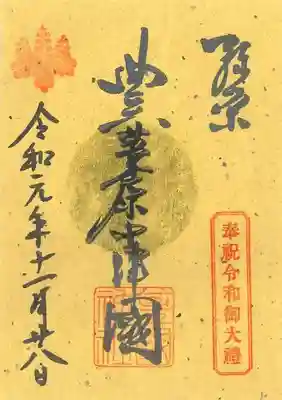 奉祝令和御大禮
豊葦原中津國
令和元年十一月廿八日